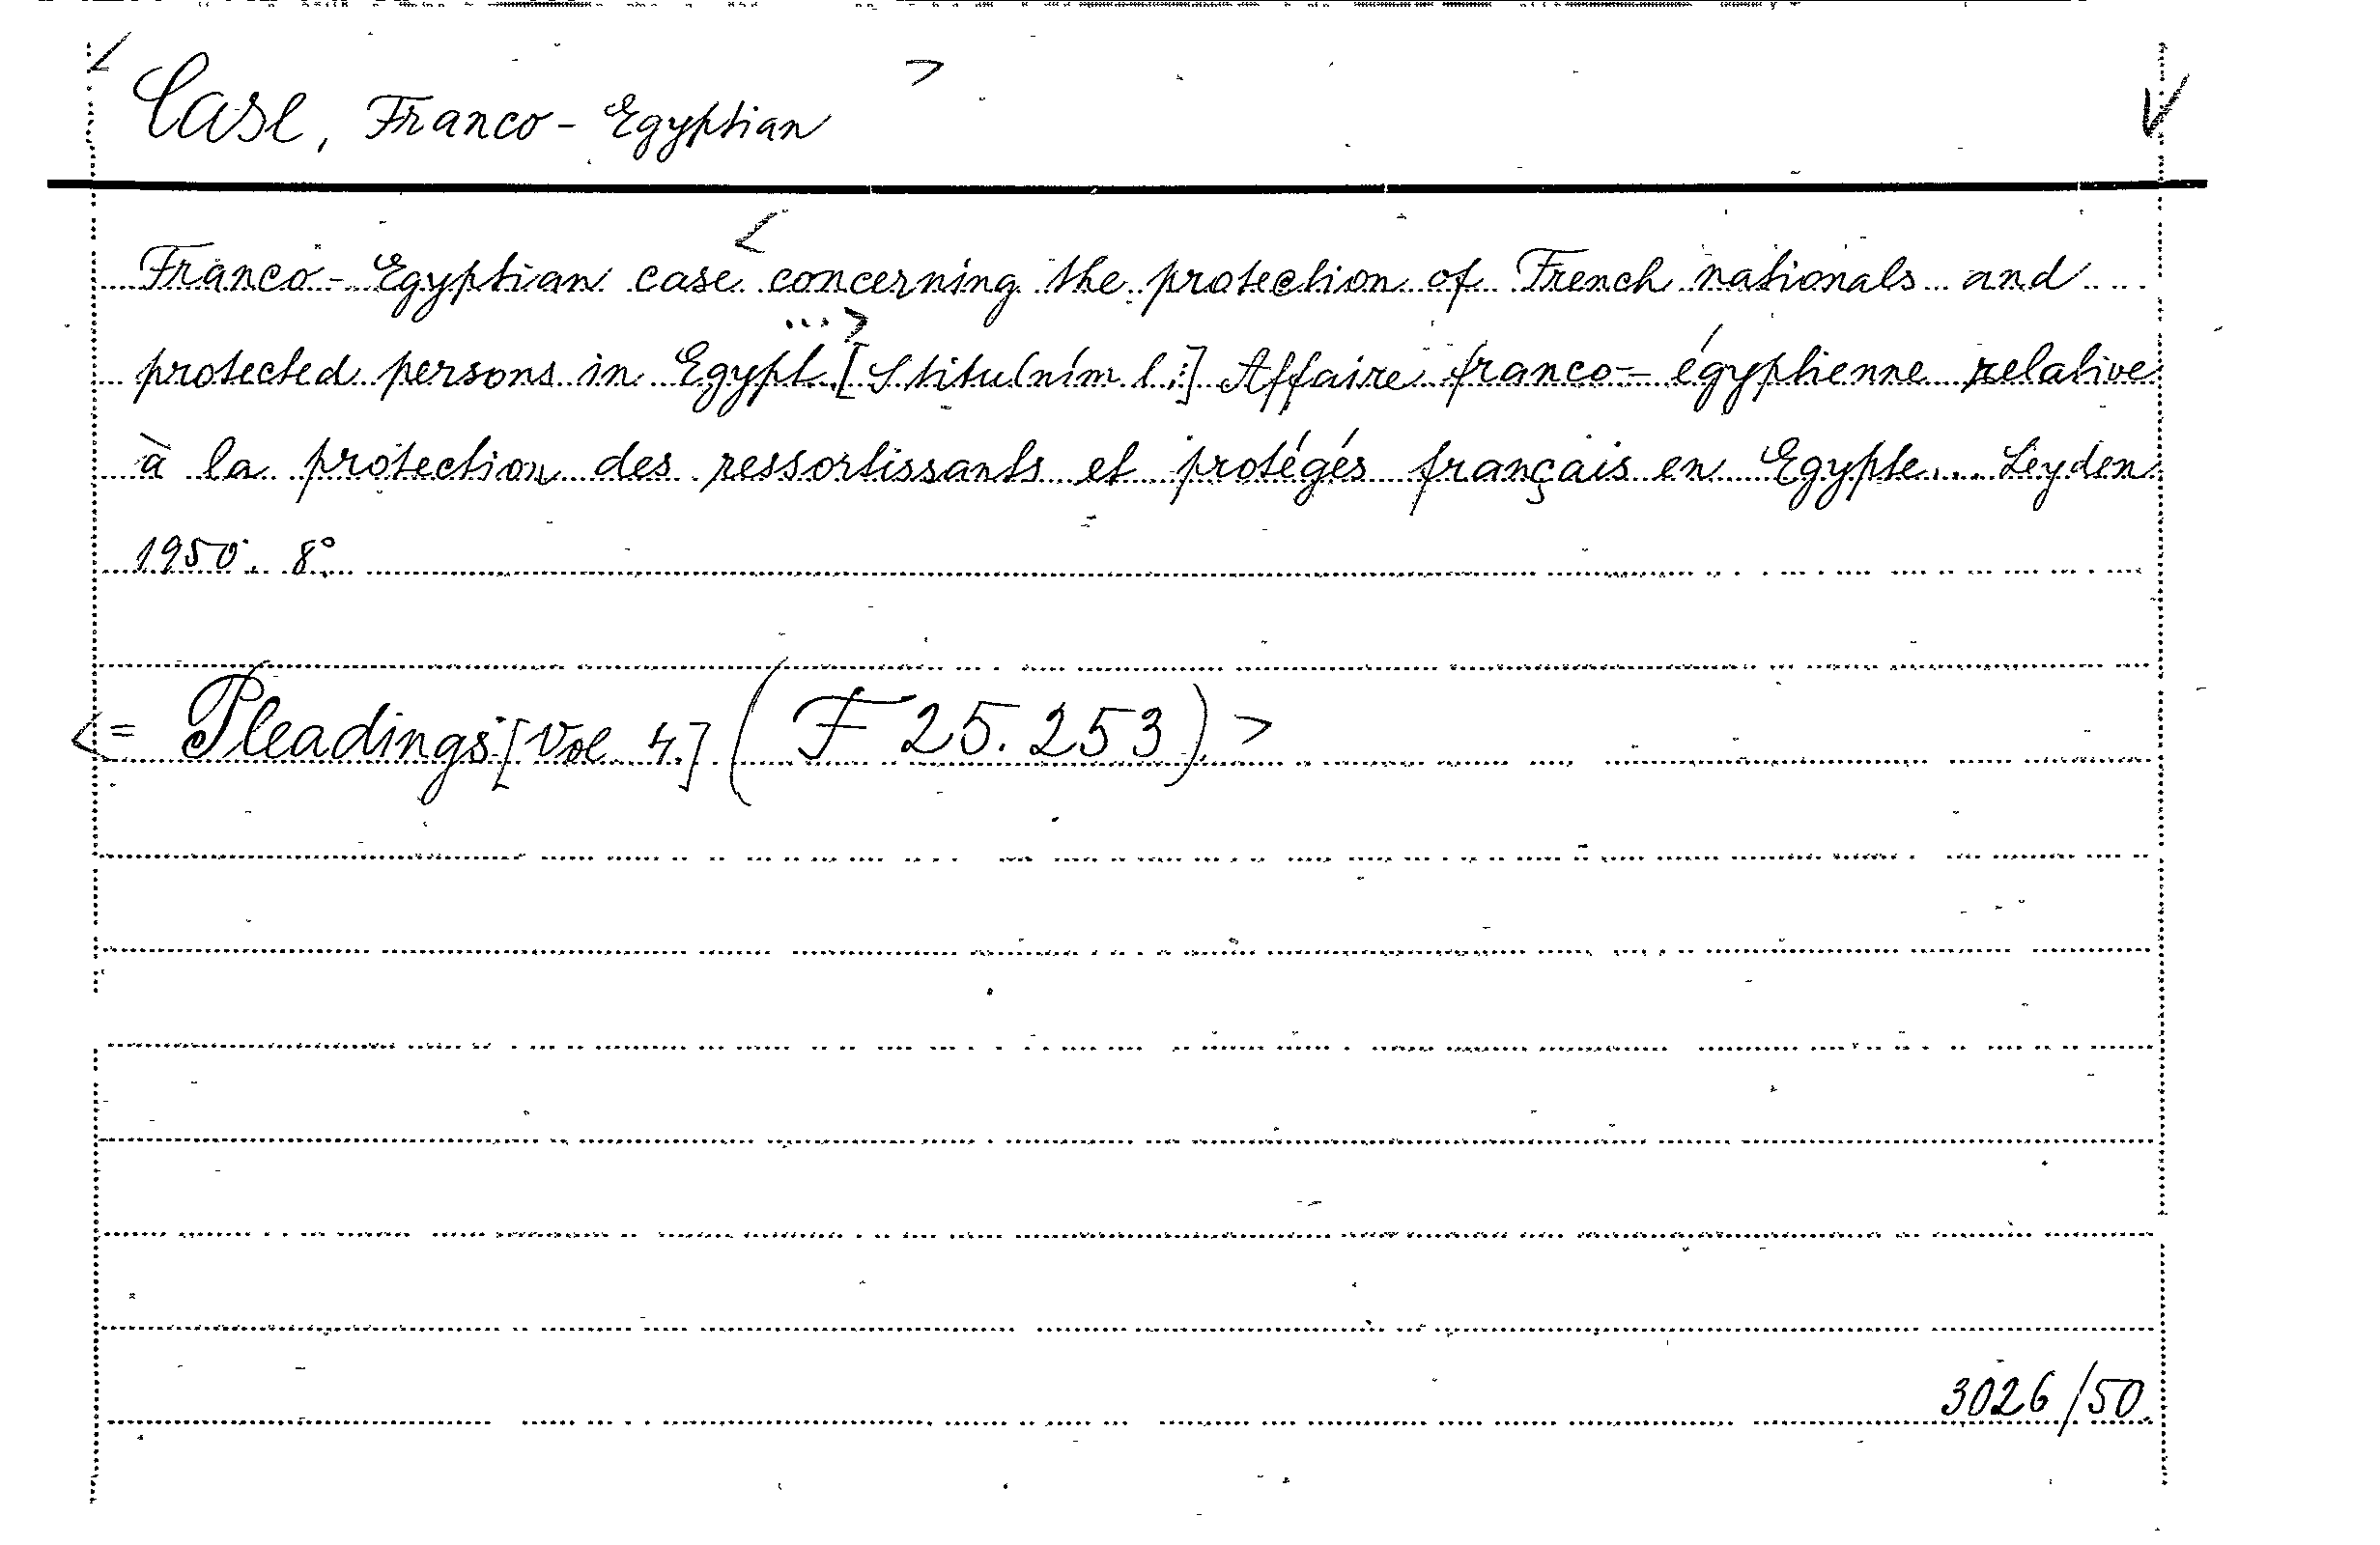 < Case, Franco-Egyptian >
Franco-Egyptian case < concerning the protection of French nationals and
protected persons in Egypt. ...> [S titulním l.:] Affaire franco-égyptienne relative
à la protection des ressortissants et protégés français en Egypte... Leyden
1950. 8°.
<= Pleadings [Vol. 4.] (F 25.253) >
3026/50.